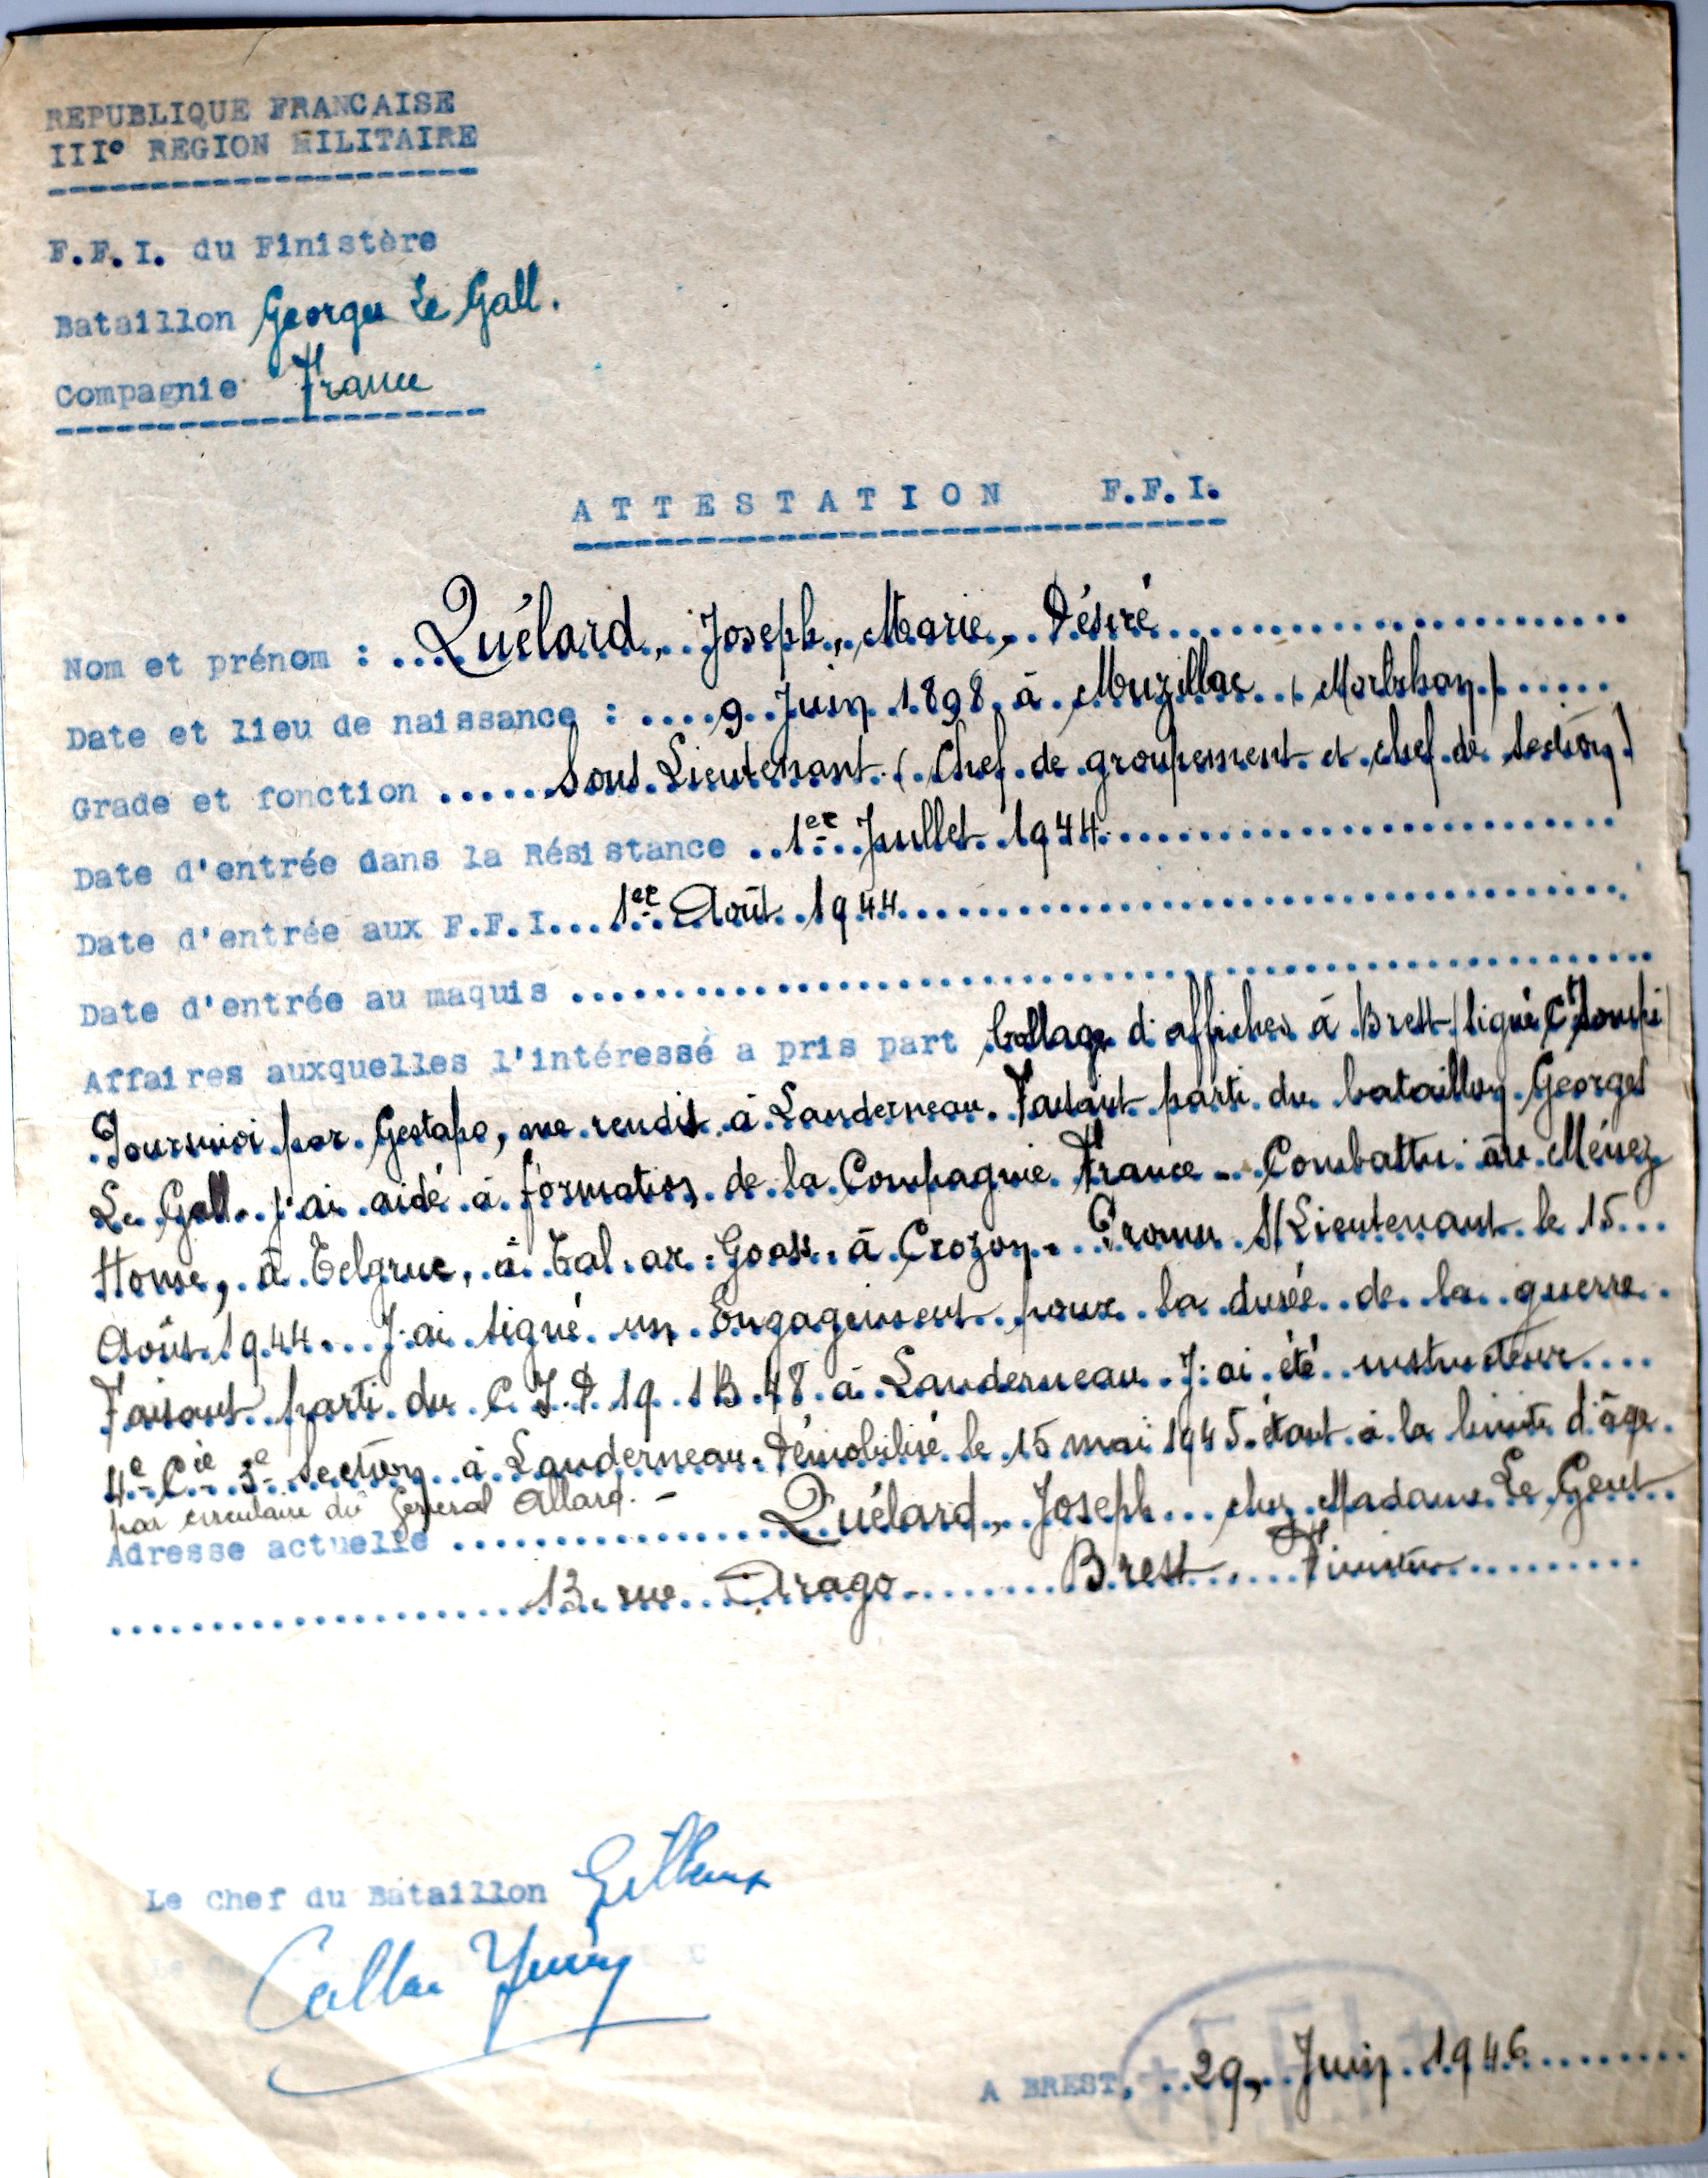 REPUBLIQUE FRANCAISE
III° REGION MILITAIRE
F.F.I. du Finistère
Bataillon Georges Le Gall.
Compagnie France
ATTESTATION F.F.I.
Nom et prénom : Quélard, Joseph, Marie, Désiré
Date et lieu de naissance : 9 Juin 1898 à Muzillac (Morbihan)
Grade et fonction Sous Lieutenant (Chef de groupement et chef de section)
Date d'entrée dans la Résistance 1er Juillet 1944
Date d'entrée aux F.F.I. 1er Août 1944
Date d'entrée au maquis
Affaires auxquelles l'intéressé a pris part Collage d'affiches à Brest (signé Ct
Poursuivi par Gestapo, me rendis à Landerneau. Faisant parti du bataillon Georges
Le Gall. j'ai aidé à formation de la Compagnie France - Combattu au Ménez
Home, à Telgruc, à Tal.ar.Goas. à Crozon. Promu S/Lieutenant le 15
Août 1944. J'ai signé un Engagement pour la durée de la guerre.
Faisant parti du C I.D 19 1B.48 à Landerneau. J'ai été instructeur
4e Cie 3e Section à Landerneau. Démobilisé le 15 mai 1945 étant à la limite d'âge.
par circulaire du Général Allard. -
Adresse actuelle Quélard, Joseph chez Madame Le Gent
13. rue Arago Brest Finistère
Le Chef du Bataillon
A BREST, 29, Juin 1946